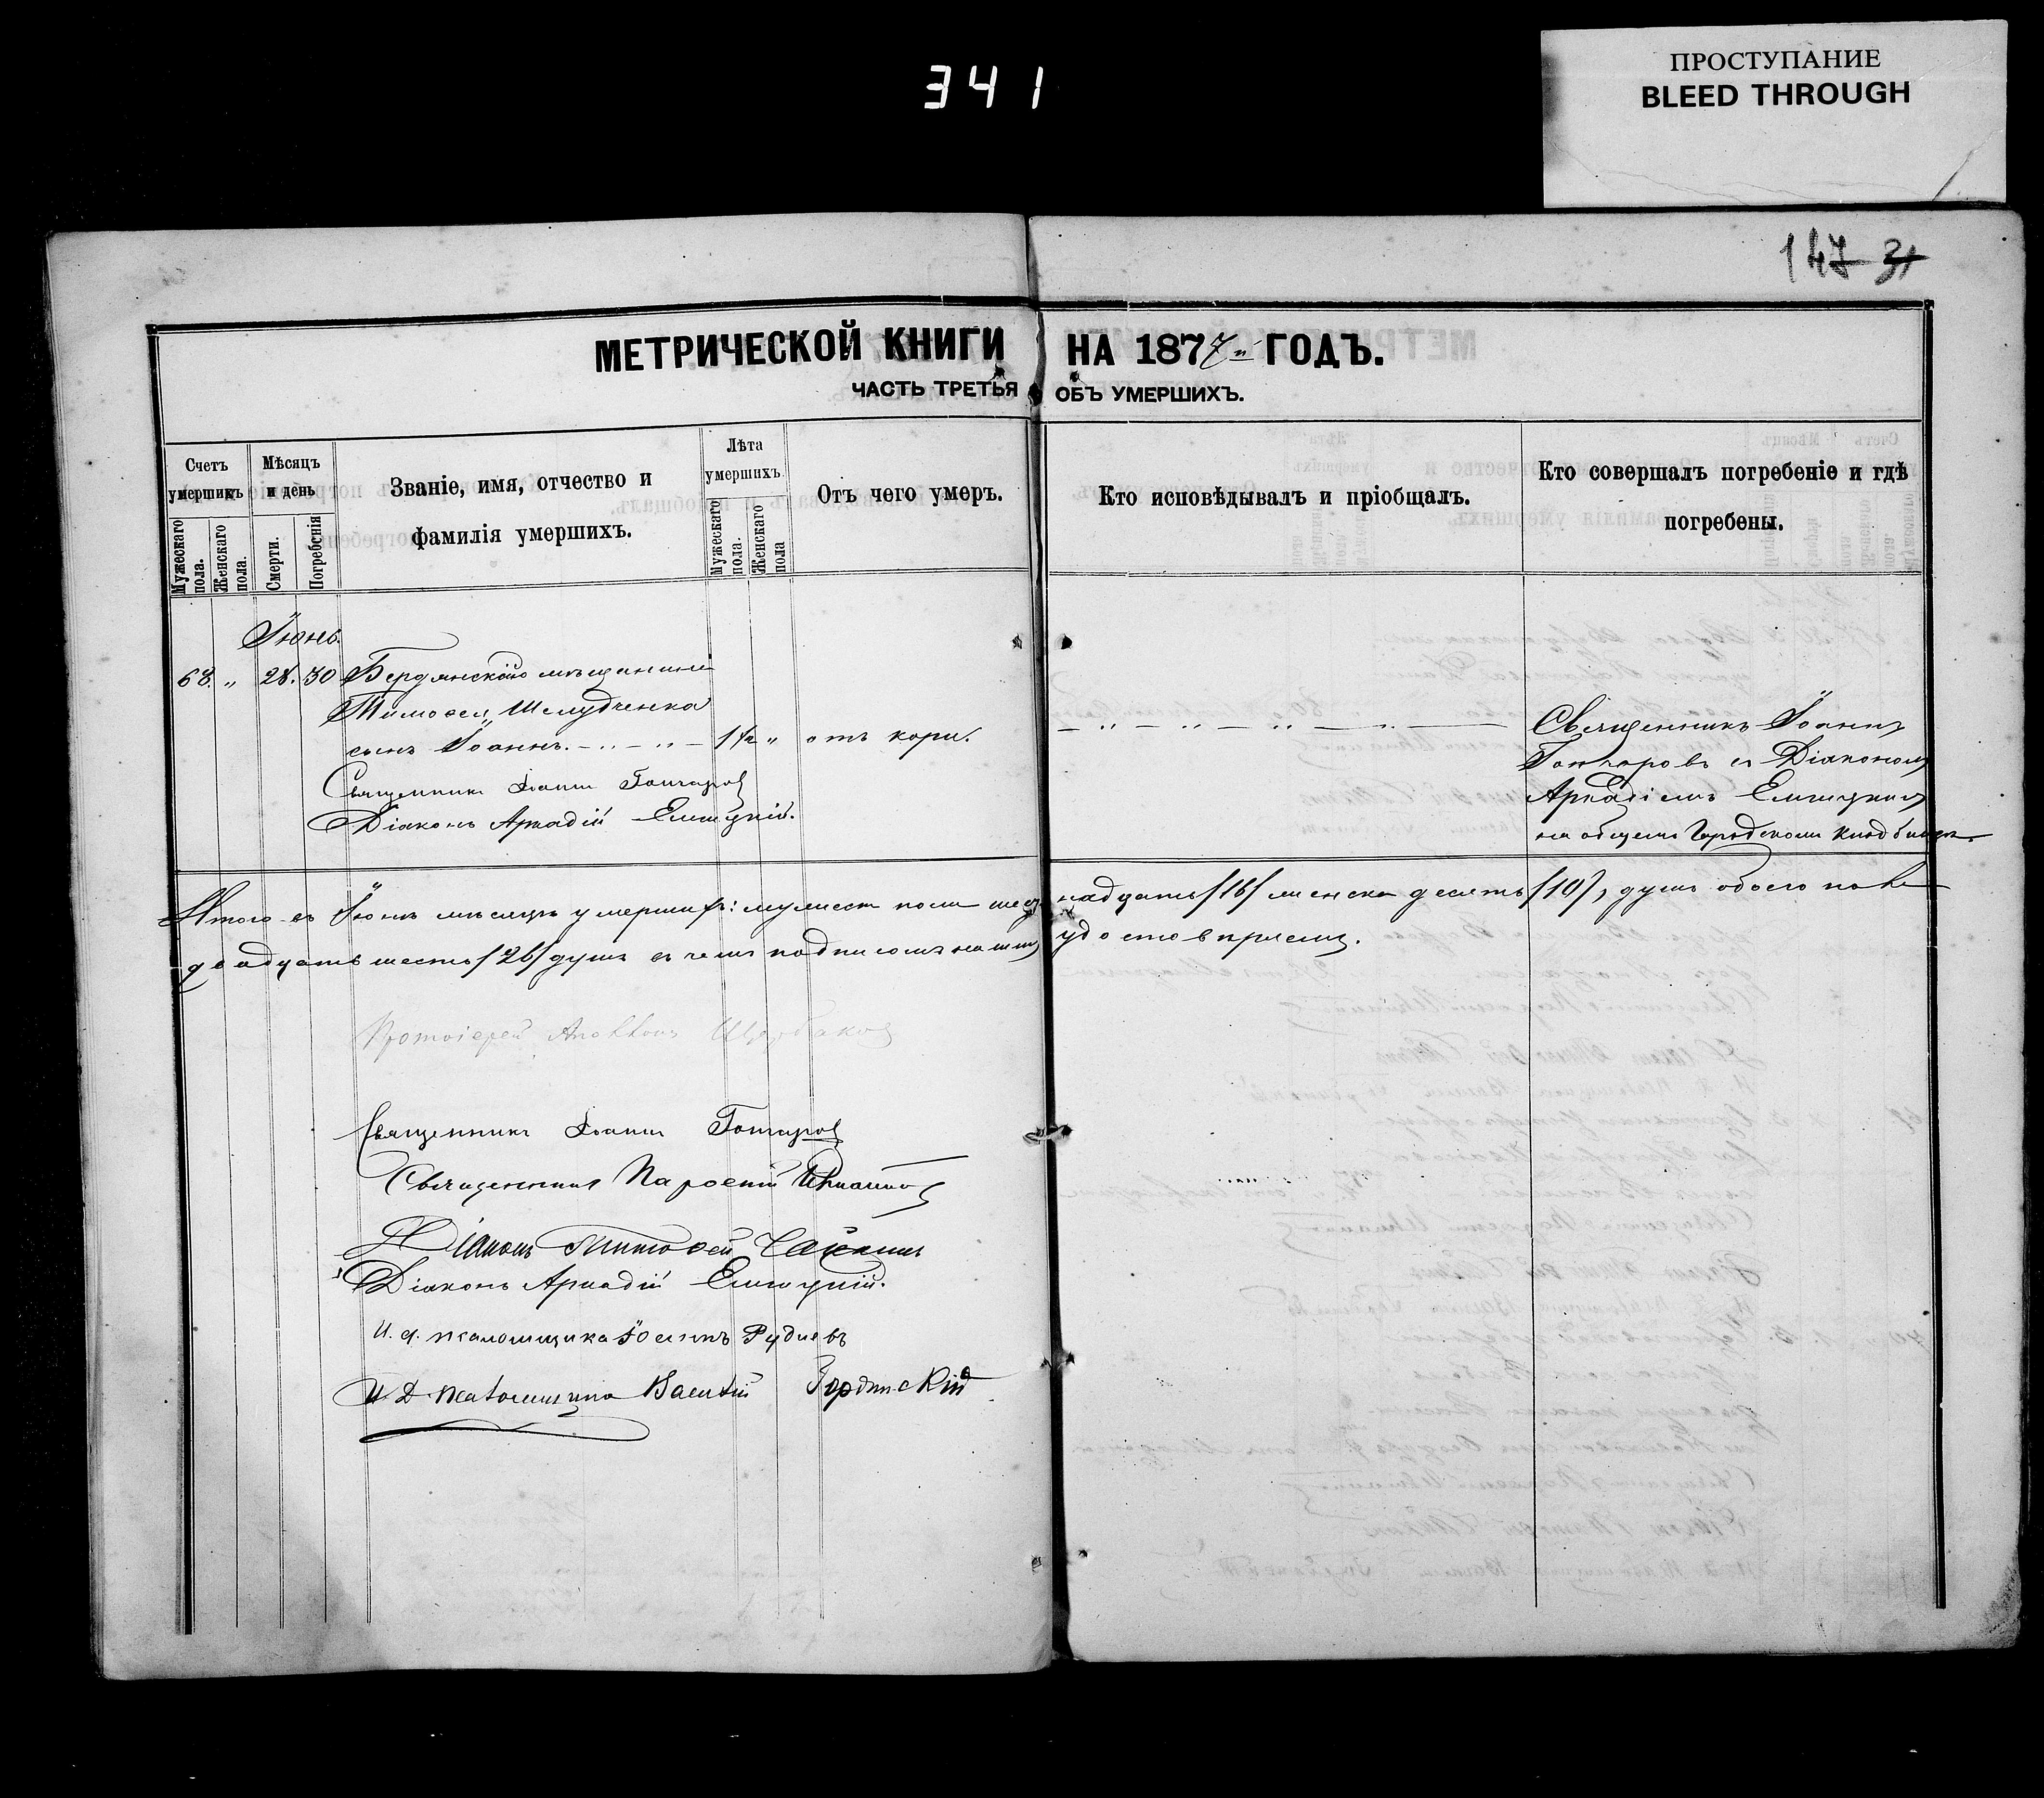 341
ПРОСТУПАНИЕ
BLEED THROUGH
147 31
МЕТРИЧЕСКОЙ КНИГИ НА 1877й ГОДЪ.
ЧАСТЬ ТРЕТЬЯ ОБЪ УМЕРШИХЪ.
Счетъ умершихъ
Мужескаго пола.
Женскаго пола.
Мѣсяцъ и день
Смерти.
Погребенія
Званіе, имя, отчество и
фамилія умершихъ.
Лѣта умершихъ.
Мужескаго пола.
Женскаго пола
Отъ чего умеръ.
Кто исповѣдывалъ и пріобщалъ.
Кто совершалъ погребеніе и гдѣ
погребены.
Іюнь.
68. „ 28. 30 Бердянскаго мѣщанина
Тимоѳея Шелудченка
сынъ Іоаннъ. 1½ „ отъ кори.
Священникъ Іоаннъ Гончаровъ
Діаконъ Аркадій Елицкій.
Священникъ Іоаннъ
Гончаровъ съ Діакономъ
Аркадіемъ Елицкимъ
на общемъ Городскомъ кладбищѣ.
Итого въ Іюнѣ мѣсяцѣ умершихъ: мужеска пола шестнадцать /16/ женска десять /10/, душъ обоего пола
двадцать шесть /26/ душъ въ чемъ подписомъ нашимъ удостовѣряемъ.
Протоіерей Аполлонъ Щербаковъ
Священникъ Іоаннъ Гончаровъ
Священникъ Парѳеній
Діаконъ Тимоѳей
Діаконъ Аркадій Елицкій.
И. д. псаломщика Іосифъ Рудневъ
И. д. псаломщика Василій Гординскій